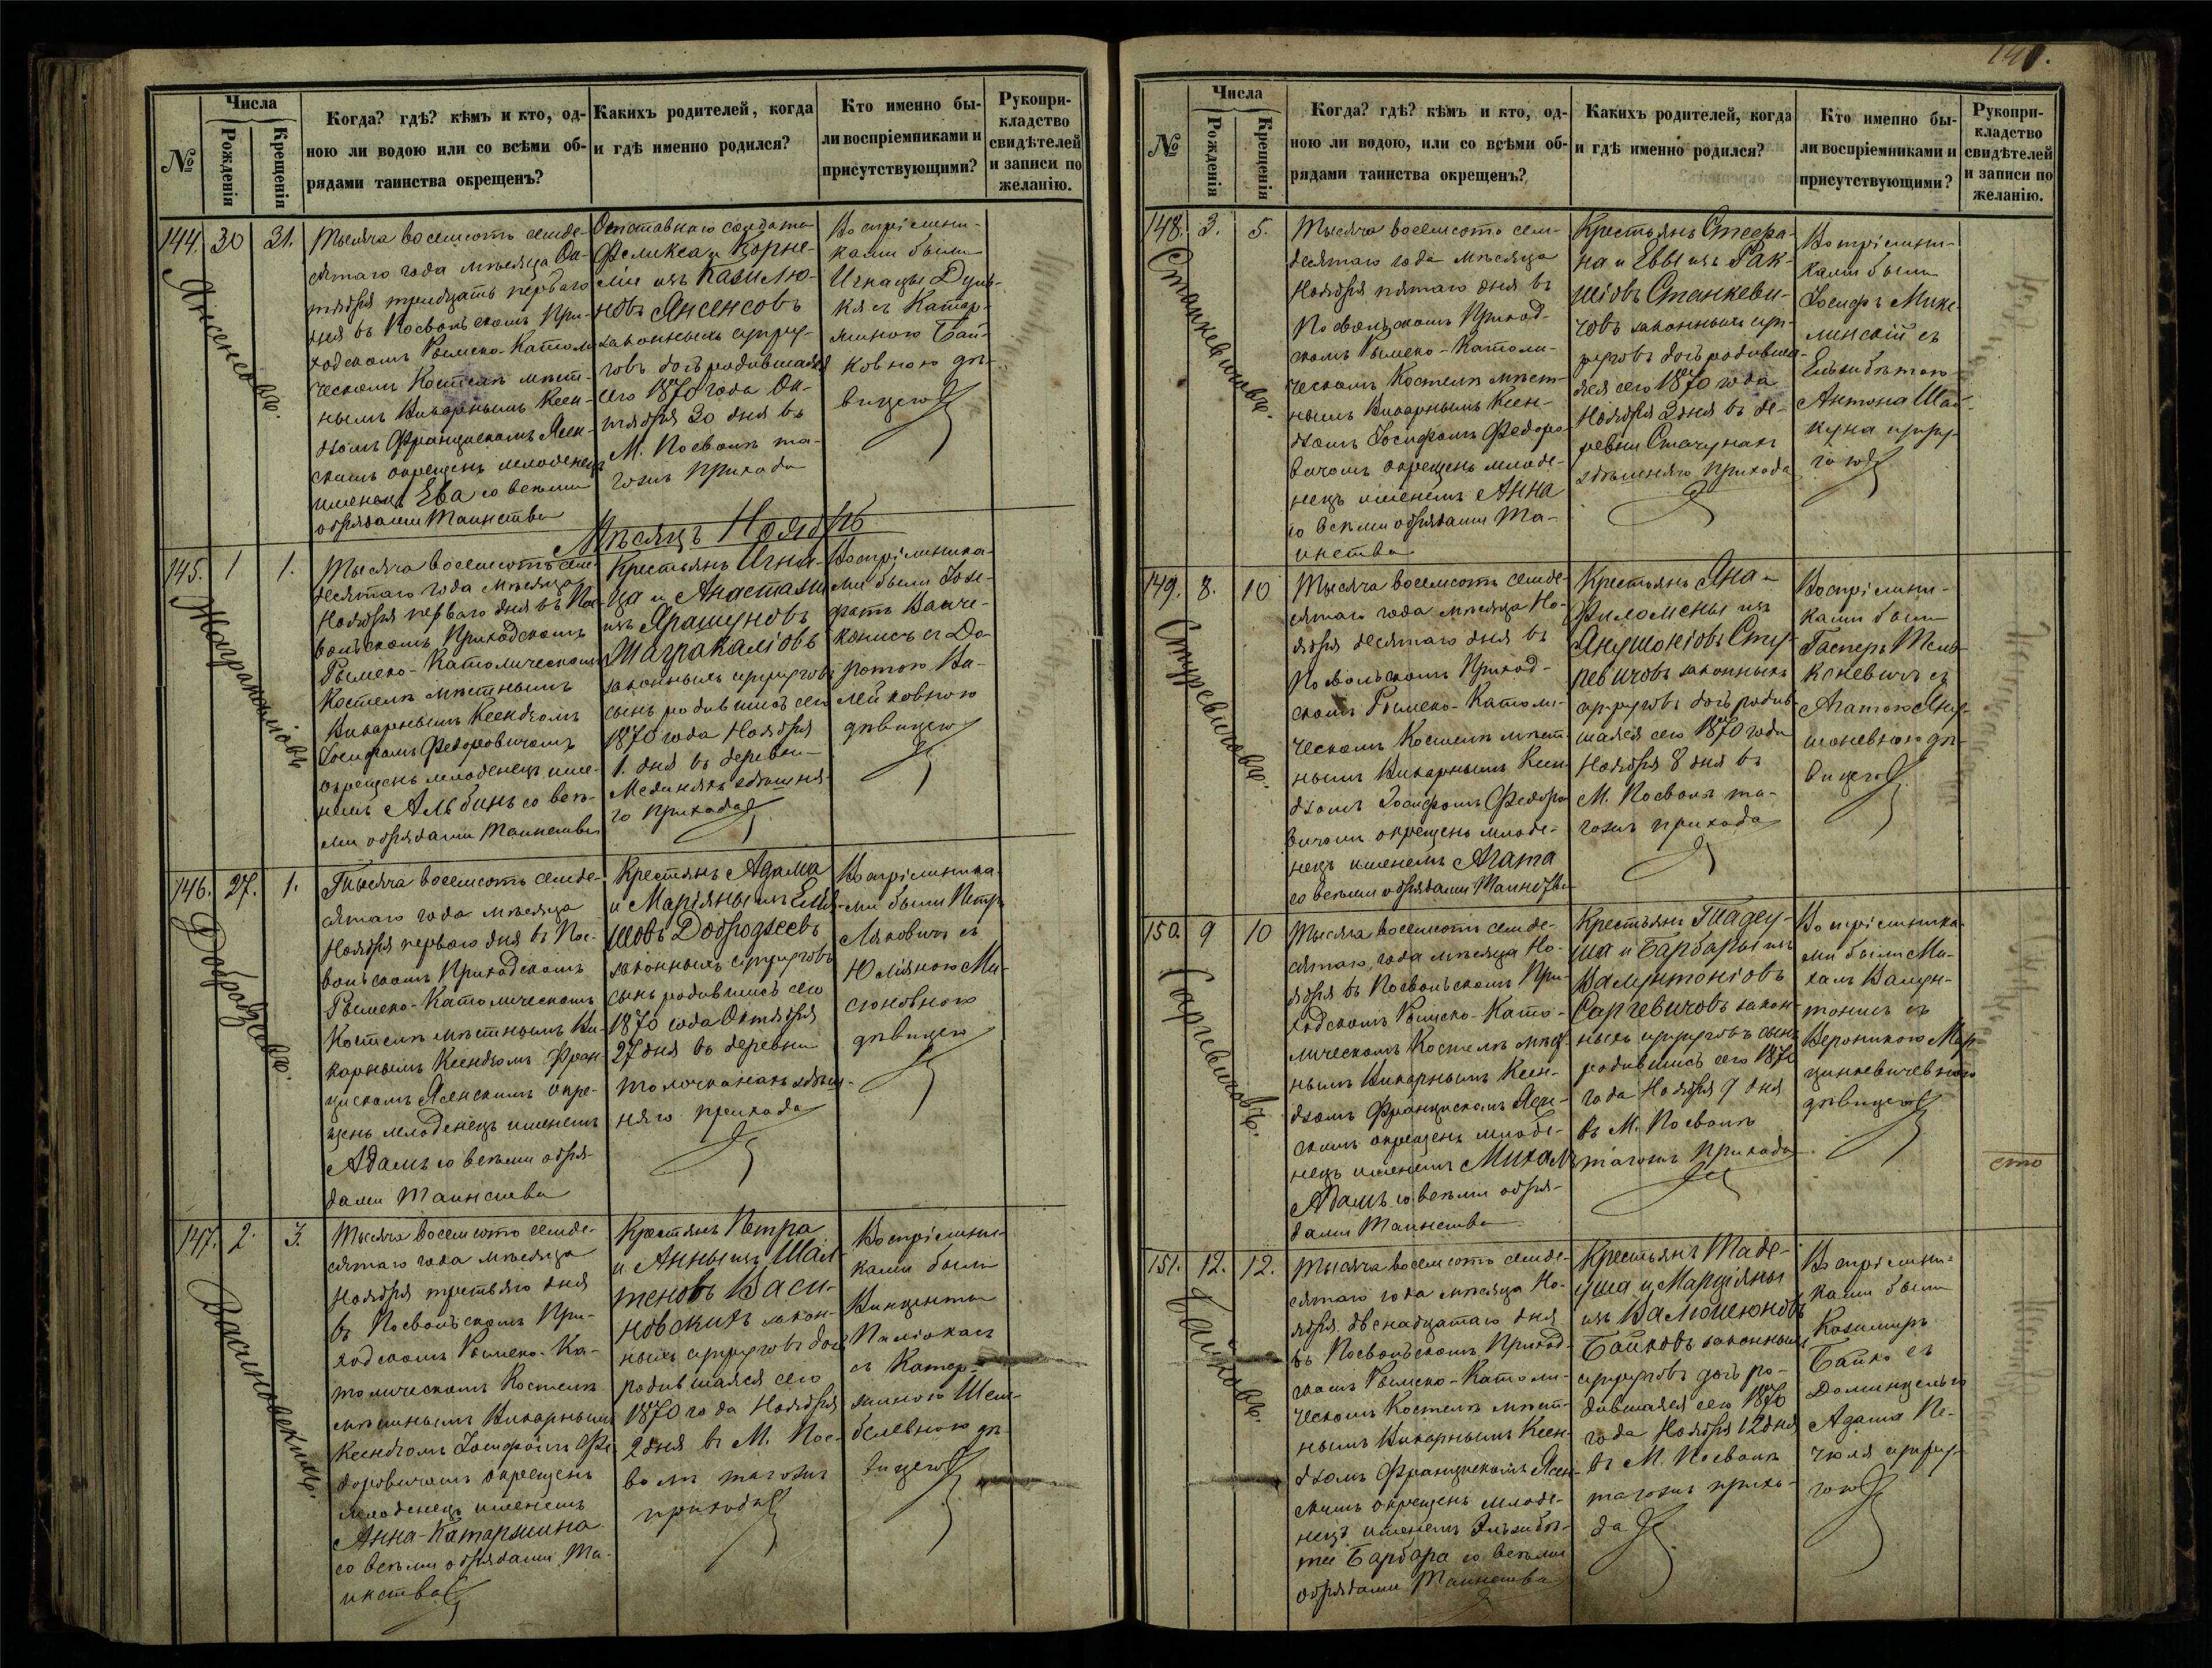 №
Числа
Рожденія
Крещенія
Когда? гдѣ? кѣмъ и кто, од-
ною ли водою или со всѣми об-
рядами таинства окрещенъ?
Какихъ родителей, когда
и гдѣ именно родился?
Кто именно бы-
ли воспріемниками и
присутствующими?
Рукопри-
кладство
свидѣтелей
и записи по
желанію.
144.
30
31.
Тысяча восемьсотъ семде-
сятаго года мѣсяца Ок-
тября тридцать перваго
дня въ Посвольскомъ При-
ходскомъ Римско-Католи
ческомъ Костелѣ мѣст-
нымъ Викарнымъ Ксен-
дзомъ Францискомъ Ясен-
скимъ окрещенъ младенецъ
именемъ Ева со всѣми
обрядами Таинства
Отставнаго солдата
Феликса и Корне-
ліи изъ Казилю-
новъ Янсенсовъ
законныхъ супру-
говъ дочь родившаяся
сего 1870 года Ок-
тября 30 дня въ
М. Посволѣ та-
гожъ прихода
Воспріемни-
ками были
Игнацы
съ Катар-
жиною Бай-
ковною дѣ-
вицею
Мѣсяцъ Ноябрь
145.
1
1.
Тысяча восемьсотъ сем-
десятаго года мѣсяца
Ноября перваго дня въ Пос-
вольскомъ Приходскомъ
Римско-Католическомъ
Костелѣ мѣстнымъ
Викарнымъ Ксендзомъ
Іосифомъ Федоровичомъ
окрещенъ младенецъ име-
немъ Альбинъ со всѣ-
ми обрядами Таинства
Крестьянъ Игна-
ца и Анастазіи
изъ Ярашуновъ
Жагракаліовъ
законныхъ супруговъ
сынъ родившійсь сего
1870 года Ноября
1. дня въ деревни
Мединяхъ здѣшня-
го прихода
Воспріемника-
ми были Іозе-
фатъ
съ До-
ротою Ва-
лейковною
дѣвицею
146.
27.
1.
Тысяча восемьсотъ семде-
сятаго года мѣсяца
Ноября перваго дня въ Пос-
вольскомъ Приходскомъ
Римско-Католическомъ
Костелѣ мѣстнымъ Ви-
карнымъ Ксендзомъ Фран-
цискомъ Ясенскимъ окре-
щенъ младенецъ именемъ
Адамъ со всѣми обря-
дами Таинства
Крестянъ Адама
и Маріяны изъ
Добродзеевъ
законныхъ супруговъ
сынъ родившійсь сего
1870 года Октября
27 дня въ деревни
Толочканахъ здѣш-
няго прихода
Воспріемника-
ми были Петръ
Ляковичъ съ
Юліяною Ми-
сюновною
дѣвицею
147.
2.
3.
Тысяча восемьсотъ семде-
сятаго года мѣсяца
Ноября третьяго дня
въ Посвольскомъ При-
ходскомъ Римско-Ка-
толическомъ Костелѣ
мѣстнымъ Викарнымъ
Ксендзомъ Іосифомъ Фе-
доровичомъ окрещенъ
младенецъ именемъ
Анна-Катаржина
со всѣми обрядами Та-
инства
Крестянъ Петра
и Анны изъ Шал-
теновъ Васи-
новскихъ закон-
ныхъ супруговъ дочь
родившаяся сего
1870 года Ноября
2 дня въ М. Пос-
волѣ тагожъ
прихода
Воспріемни-
ками были
Винценты
Паліокасъ
съ Катар-
жиною
дѣ-
вицею
141.
№
Числа
Рожденія
Крещенія
Когда? гдѣ? кѣмъ и кто, од-
ною ли водою, или со всѣми об-
рядами таинства окрещенъ?
Какихъ родителей, когда
и гдѣ именно родился?
Кто именно бы-
ли воспріемниками и
присутствующими?
Рукопри-
кладство
свидѣтелей
и записи по
желанію.
148.
3.
5.
Станкевичовъ.
Тысяча восемьсотъ сем-
десятаго года мѣсяца
Ноября пятаго дня въ
Посвольскомъ Приход-
скомъ Римско-Католи-
ческомъ Костелѣ мѣст-
нымъ Викарнымъ Ксен-
дзомъ Іосифомъ Федоро-
вичомъ окрещенъ младе-
нецъ именемъ Анна
со всѣми обрядами Та-
инства
Крестьянъ Стефа-
на и Евы изъ Рак-
шіовъ Станкеви-
човъ законныхъ суп-
руговъ дочь родивша-
яся сего 1870 года
Ноября 3 дня въ де-
ревни Стачунахъ
здѣшняго прихода
Воспріемни-
ками были
Іосифъ Мики-
линскій съ
Ельзибѣтою
Антона
супру-
гою
149.
8.
10
Тысяча восемьсотъ семде-
сятаго года мѣсяца Но-
ября десятаго дня въ
Посвольскомъ Приход-
скомъ Римско-Католи-
ческомъ Костелѣ мѣст-
нымъ Викарнымъ Ксен-
дзомъ Іосифомъ Федоро-
вичомъ окрещенъ младе-
нецъ именемъ Агата
со всѣми обрядами Таинства
Крестьянъ Яна и
Филомены изъ
Янушоніовъ Сту-
ревичовъ законныхъ
супруговъ дочь родив-
шаяся сего 1870 года
Ноября 8 дня въ
М. Посволѣ та-
гожъ прихода
Воспріемни-
ками были
Гасперъ
съ
Агатою Яну-
шоневною дѣ-
вицею
150.
9
10
Саргевичовъ.
Тысяча восемьсотъ семде-
сятаго года мѣсяца Но-
ября въ Посвольскомъ При-
ходскомъ Римско-Като-
лическомъ Костелѣ мѣст-
нымъ Викарнымъ Ксен-
дзомъ Францискомъ Ясен-
скимъ окрещенъ младе-
нецъ именемъ Михалъ
Адамъ со всѣми обря-
дами Таинства
Крестьянъ Тадеу-
ша и Барбары изъ
Валунтоніовъ
Саргевичовъ закон-
ныхъ супруговъ сынъ
родившійсь сего 1870
года Ноября 9 дня
въ М. Посволѣ
тагожъ прихода
Воспріемника-
ми были Ми-
халъ Валун-
тонисъ съ
Вероникою Мар-
цинкевичевною
дѣвицею
151.
12.
12.
Байковъ.
Тысяча восемьсотъ семде-
сятаго года мѣсяца Но-
ября двенадцатаго дня
въ Посвольскомъ Приход-
скомъ Римско-Католи-
ческомъ Костелѣ мѣст-
нымъ Викарнымъ Ксен-
дзомъ Францискомъ Ясен-
скимъ окрещенъ младе-
нецъ именемъ Эльзибѣ-
та Барбара со всѣми
обрядами Таинства
Крестьянъ Таде-
уша и Марціяны
изъ
Байковъ законныхъ
супруговъ дочь ро-
дившаяся сего 1870
года Ноября 12 дня
въ М. Посволѣ
тагожъ прихо-
да
Воспріемни-
ками были
Казимиръ
Байко съ
Доминцелею
Адама Пе-
чюля супру-
гою